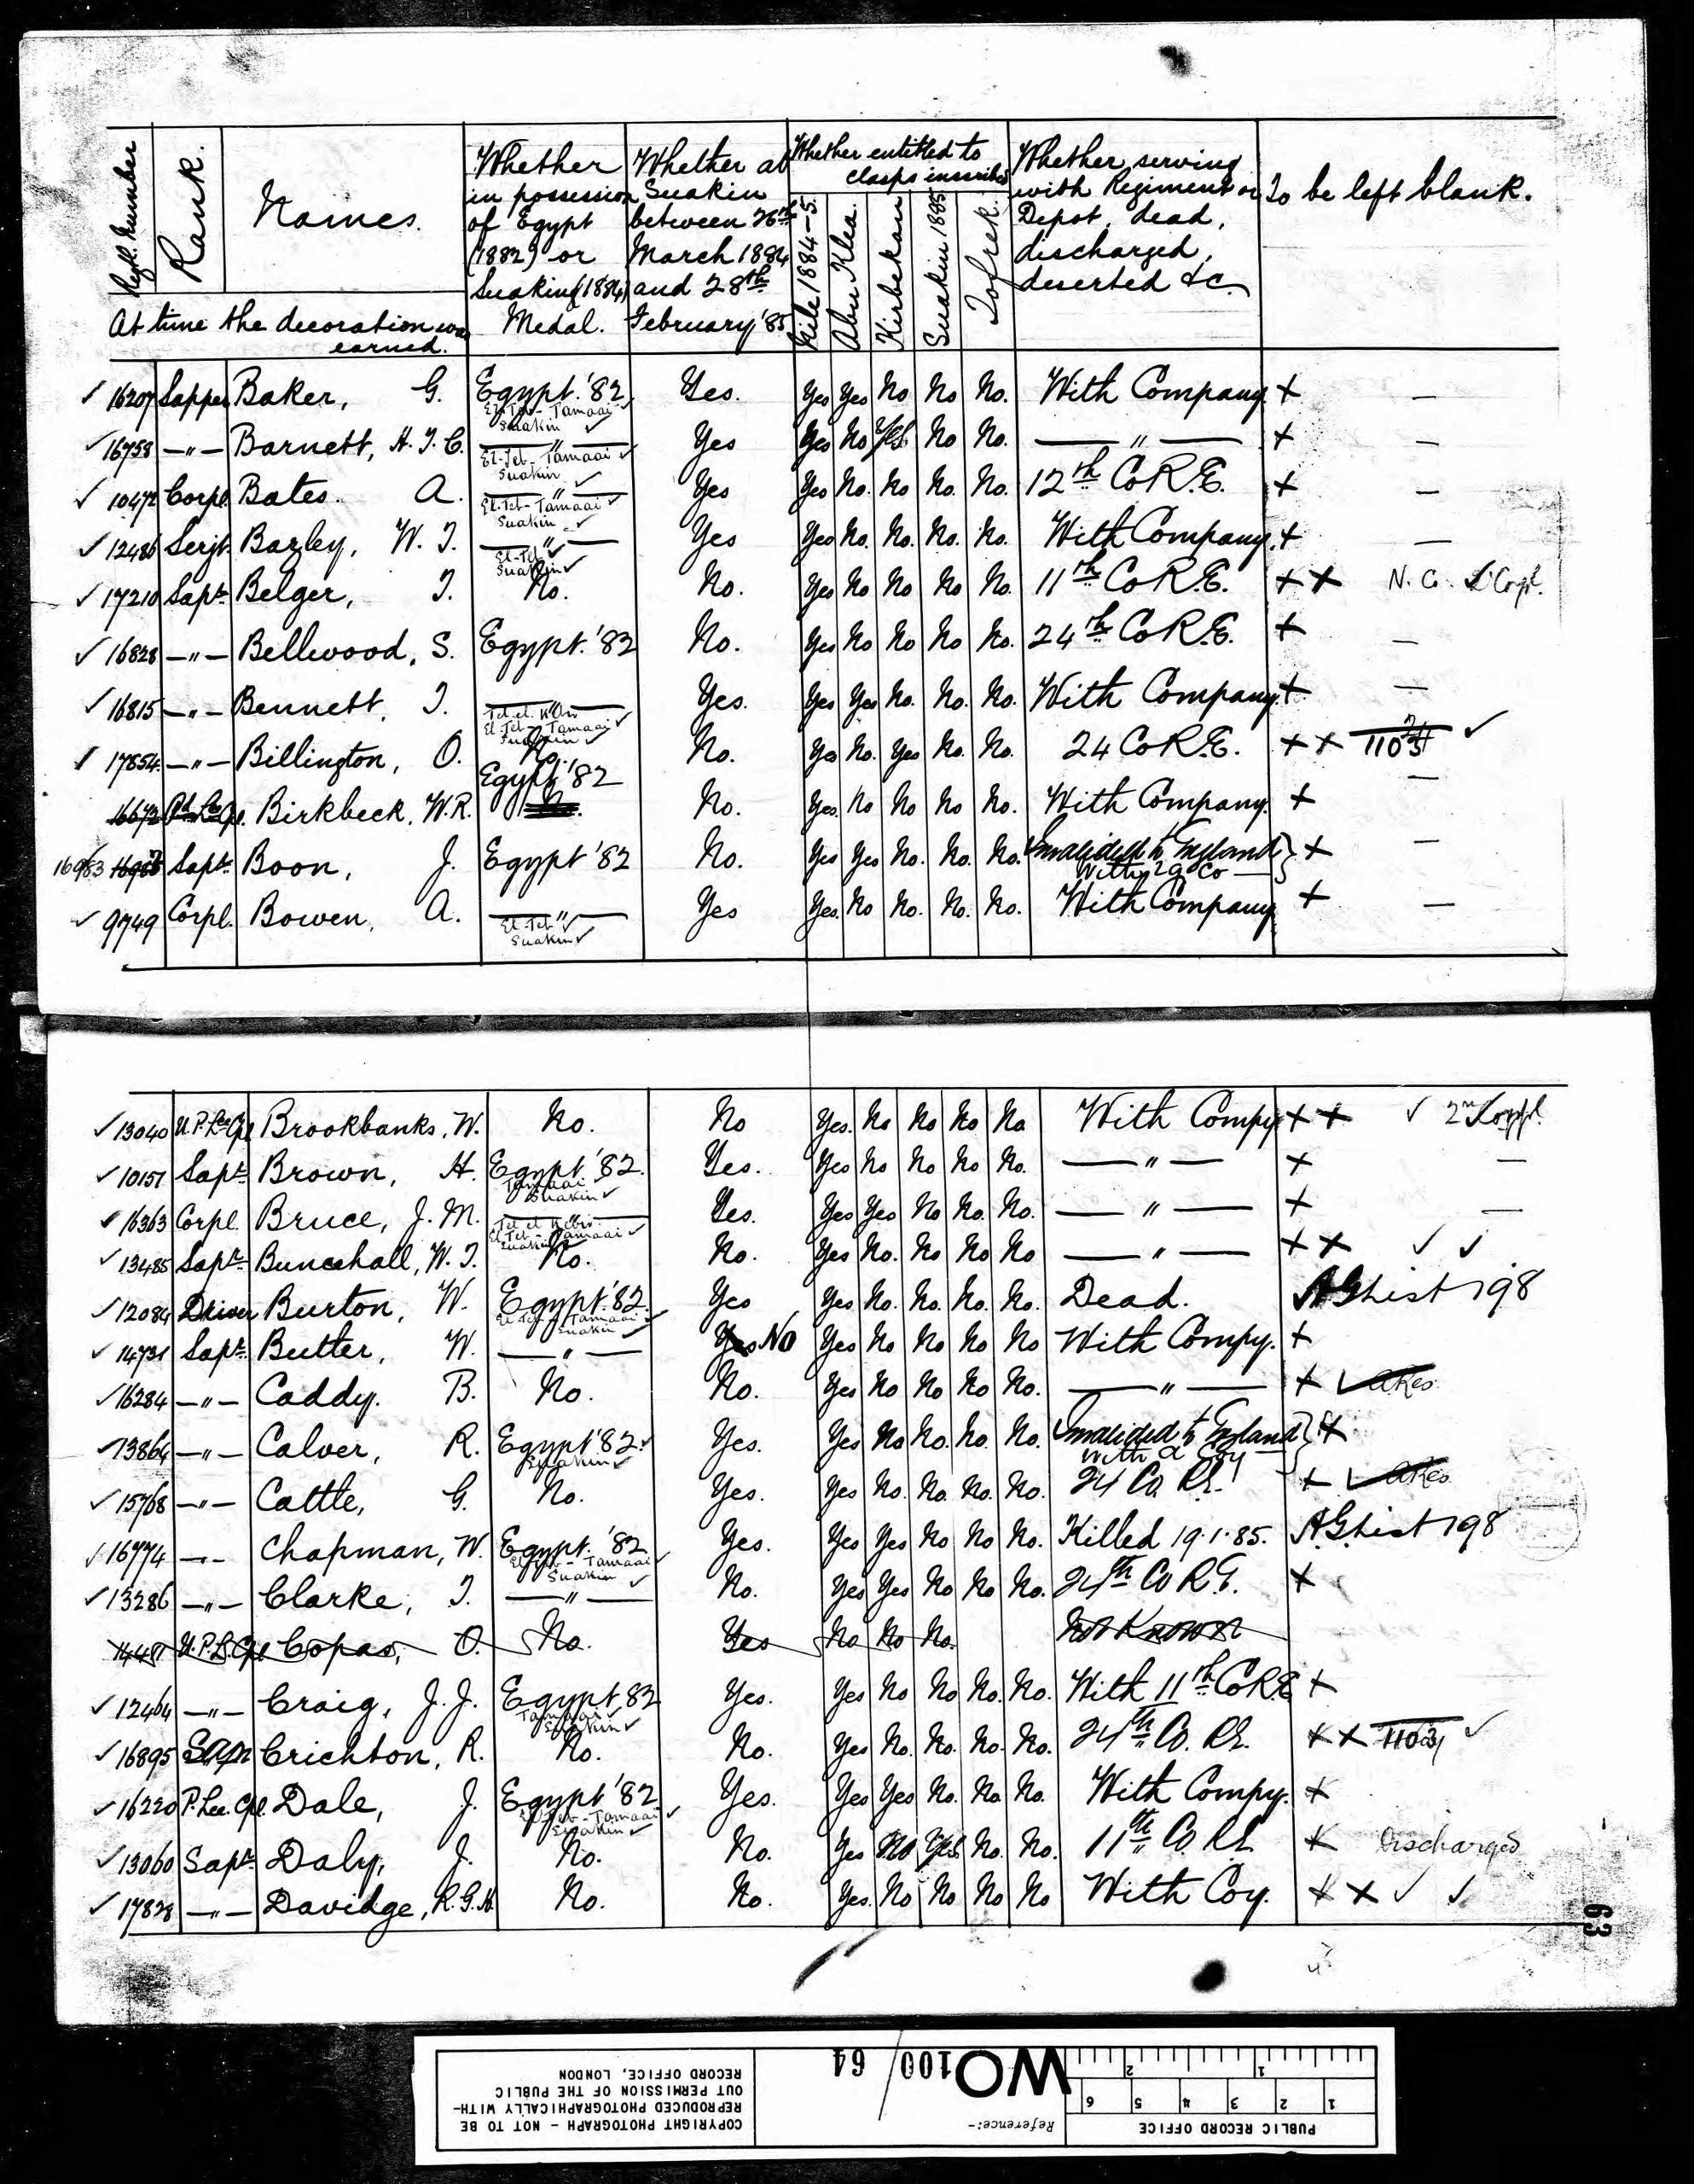 Regtl. Number Rank. Names. Whether in possession of Egypt (1882) or Suakin (1884) Medal. Whether at Suakin between 26th March 1884 and 28th February '85 Whether entitled to clasps inscribed Nile 1884-5. Abu Klea. Kirbekan Suakin 1885 Tofrek. Whether serving with Regiment or Depot, dead, discharged, deserted &c. To be left blank.
At time the decoration was earned.
✓ 16207 Sapper Baker, G. Egypt. '82 Yes. Yes Yes No No No. With Company + —
El-Teb - Tamaai
Suakin ✓
✓ 16758 —"— Barnett, H. J. C. —"— Yes Yes No Yes No No. —"— + —
El-Teb - Tamaai ✓
Suakin ✓
✓ 10472 Corpl. Bates. A. —"— Yes Yes No. No No. No. 12th Co R.E. + —
El-Teb - Tamaai ✓
Suakin ✓
✓ 12486 Serjt. Bazley, W. J. —"— Yes Yes No. No. No. No. With Company. + —
El-Teb ✓
Suakin ✓
✓ 17210 Sapr. Belger, J. No. No. Yes No No No No. 11th Co R.E. + + N. C. L Corpl.
✓ 16828 —"— Bellwood, S. Egypt. '82 No. Yes No No No No. 24th Co R.E. + —
✓ 16815 —"— Bennett, J. —"— Yes. Yes Yes No. No. No. With Company. + —
Tel el Kebir
El-Teb - Tamaai ✓
Suakin ✓
✓ 17854 —"— Billington, O. No. No. Yes No. Yes No. No. 24 Co R.E. + + 1103 ✓
Egypt '82
16672 Birkbeck, W.R. No. No. Yes. No No No No. With Company. + —
16983 Sapr. Boon, J. Egypt '82 No. Yes Yes No. No. No. Invalided to England } + —
With 29 Co
✓ 9749 Corpl. Bowen, A. —"— Yes Yes. No No. No. No. With Company + —
El-Teb ✓
Suakin ✓
✓ 13040 U.P. Lce Cpl Brookbanks, W. No. No Yes. No No No No With Compy + + ✓ 2nd Corpl.
✓ 10151 Sapr. Brown, H. Egypt '82. Yes. Yes No No No No. —"— + —
Tamaai
Suakin ✓
✓ 16363 Corpl. Bruce, J. M. —"— Yes. Yes Yes No No. No. —"— + —
Tel el Kebir
El Teb - Tamaai ✓
Suakin ✓
✓ 13485 Sapr. Buncehall, W. J. No. No. Yes No. No No No —"— + + ✓ ✓
✓ 12084 Driver Burton, W. Egypt '82. Yes Yes No. No. No. No. Dead. AG List 198
El Teb - Tamaai ✓
Suakin ✓
✓ 14731 Sapr. Butler, W. —"— Yes No Yes No No No No With Compy. +
✓ 16284 —"— Caddy. B. No. No. Yes No No No No. —"— + ✓
✓ 13864 —"— Calver, R. Egypt '82 ✓ Yes. Yes No No. No. No. Invalided to England } +
Suakin ✓ with a Coy
✓ 15768 —"— Cattle, G. No. Yes. Yes No. No. No. No. 24 Co. R.E. + ✓
✓ 16774 —"— Chapman, W. Egypt. '82 Yes. Yes Yes No No No. Killed 19.1.85. A.G. List 198
El Teb - Tamaai ✓
Suakin ✓
✓ 13286 —"— Clarke, J. —"— No. Yes Yes No No No. 24th Co R.E. +
14481 U.P. L. Cpl Copas, O. No. Yes No No No. Not Known
✓ 12464 —"— Craig, J. J. Egypt 82 Yes. Yes No No No. No. With 11th Co R.E. +
Tamaai ✓
Suakin ✓
✓ 16895 Sapr Crichton, R. No. No. Yes No. No. No. No. 24th Co. R.E. + + 1103 ✓
✓ 16220 P. Lce. Cpl. Dale, J. Egypt '82 Yes. Yes Yes No. No. No. With Compy. +
El Teb - Tamaai ✓
Suakin ✓
✓ 13060 Sapr. Daly, J. No. No. Yes No Yes No. No. 11th Co. R.E. + Discharged
✓ 17828 —"— Davidge, R.G.H. No. No. Yes. No No No No With Coy. + + ✓ ✓
63
PUBLIC RECORD OFFICE
Reference:-
WO 100/64
COPYRIGHT PHOTOGRAPH - NOT TO BE
REPRODUCED PHOTOGRAPHICALLY WITH-
OUT PERMISSION OF THE PUBLIC
RECORD OFFICE, LONDON
1 2 3 4 5 6
1 2